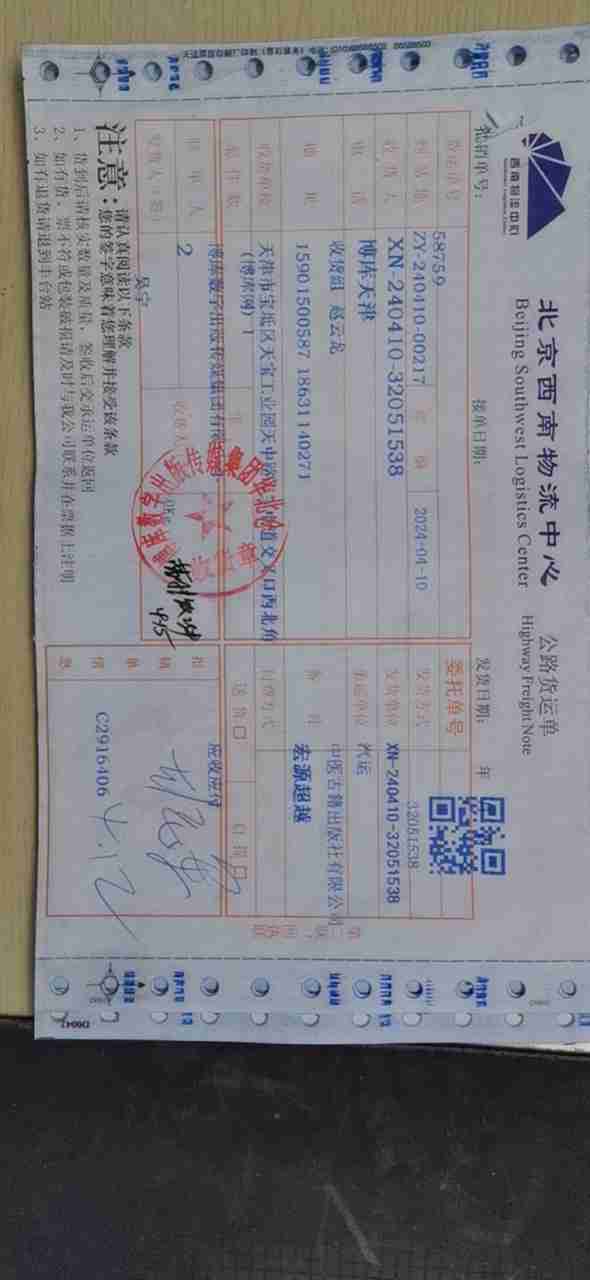 西南物流中心
北京西南物流中心 公路货运单
Beijing Southwest Logistics Center Highway Freight Note
批销单号：
接单日期：
发货日期： 年
货运单号
58759
委托单号
32051538
到站地
ZY-240410-00217
2024-04-10
发货方式
收货人
XN-240410-32051538
发货单位
XN-240410-32051538
电话
博库天津
承运单位
汽运
收货组 赵云龙
中医古籍出版社有限公司
地址
15901500587 18631140271
备注
宏源超越
收货单位
天津市宝坻区天宝工业园天中路
道交叉口西北角
付费方式
总件数
(博库网) 1
送货口
自提口
博库数字出版传媒集团有限
应收应付
制单人
2
吴宁
收货人
收货章
4.15
注意：
请认真阅读以下条款
您的签字意味着您理解并接受该条款
1、货到后请核实数量及质量，签收后交承运单位返回
2、如有货、票不符或包装破损请及时与我公司联系并在票据上注明
3、如有退货请退到丰台站
C2916406
4.12